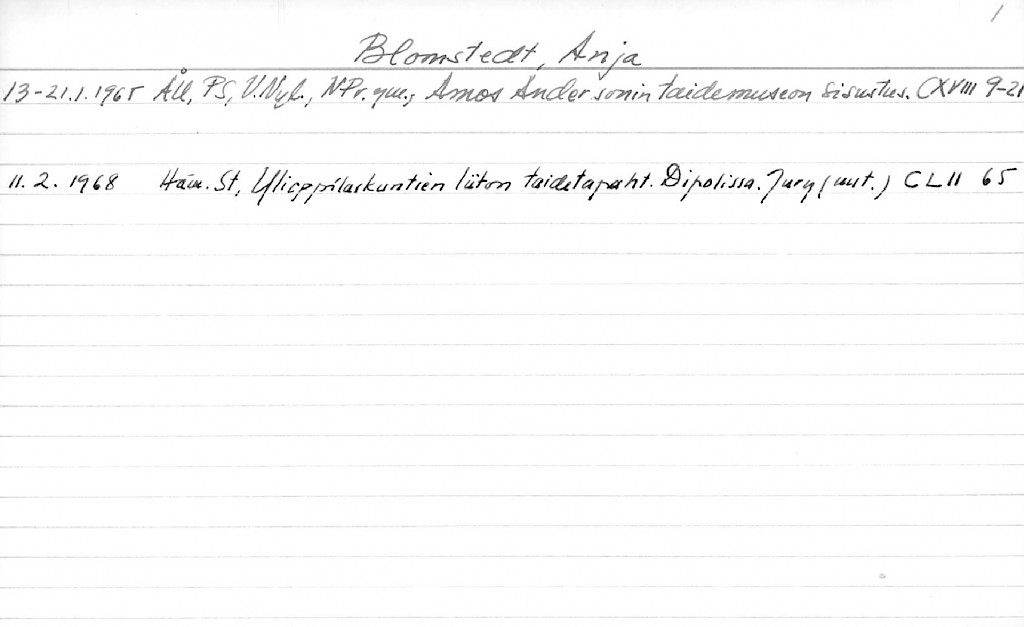 1
Blomstedt, Anja
13-21.1.1965 Åll, PS, V.Nyl., N-Pr. ym., Amos Andersonin taidemuseon sisustus. CXVIII 9-21
11.2.1968 Häm. St, Ylioppilaskuntien liiton taidetapaht. Dipolissa. Jury (uut.) CLII 65